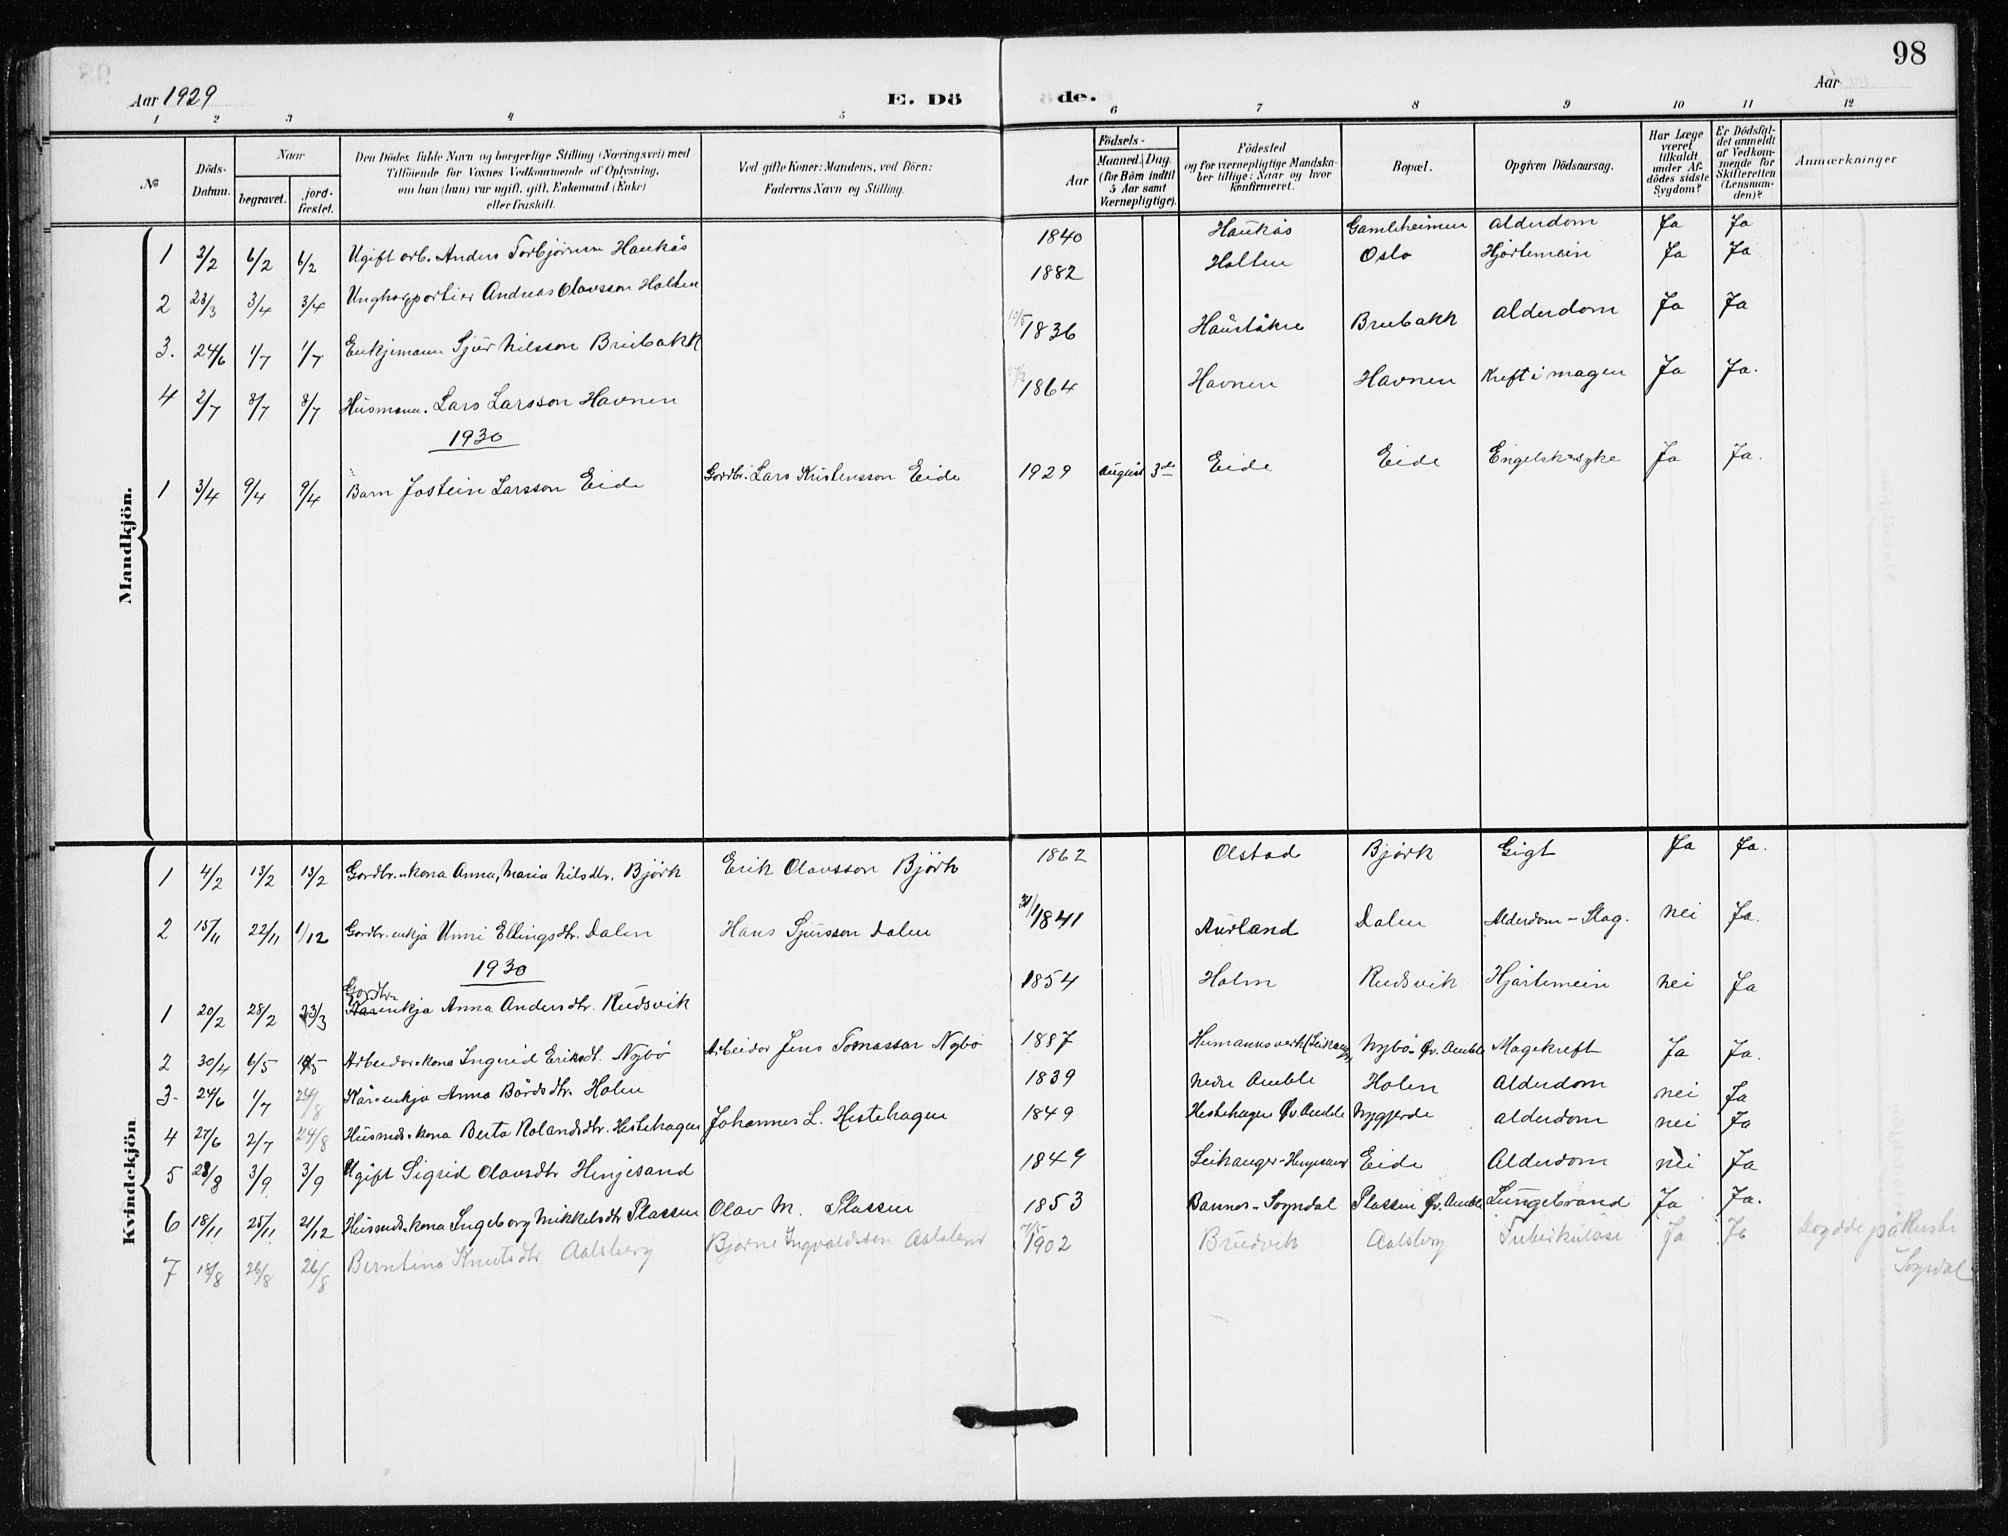 98
Aar 1929
E. Dö de.
Aar
1 2 3 4 5 6 7 8 9 10 11 12
No
Döds-Datum.
Naar
begravet.
jord-fæstet.
Den Dödes fulde Navn og borgerlige Stilling (Næringsvei) med Tilföiende for Voxnes Vedkommende af Oplysning, om han (hun) var ugift, gift, Enkemand (Enke) eller fraskilt.
Ved gifte Koner: Mandens, ved Börn: Faderens Navn og Stilling.
Födsels-
Aar
Maaned. Dag.
(for Börn indtil 5 Aar samt Værnepligtige).
Födested og for værnepligtige Mandskaber tillige: Naar og hvor konfirmeret.
Bopæl.
Opgiven Dödsaarsag.
Har Læge været tilkaldt under Afdödes sidste Sygdom?
Er Dödsfaldet anmeldt af Vedkommende for Skifteretten (Lensmanden)?
Anmærkninger
Mandkjön.
1 3/2 6/2 6/2 Ugift arb. Anders Torbjørnson Haukås 1840 Haukås Gamleheimen Alderdom Ja Ja
2 28/3 3/4 3/4 Ungkar, portier Andreas Olavsson Holten 1882 Holten Oslo Hjartemein Ja Ja
3. 24/6 1/7 1/7 Enkjemann Sjur Nilsson Breibakk 10/5 1836 Hauståkre Breibakk Alderdom Ja Ja
4 2/7 8/7 8/7 Husmann. Lars Larsson Havnen 27/3 1864 Havnen Havnen Kreft i magen Ja Ja.
1930
1 3/4 9/4 9/4 Barn Jostein Larsson Eide Gardbr. Lars Kristensson Eide 1929 August 3de Eide Eide Engelsk syke Ja Ja.
Kvindekjön
1 4/2 13/2 13/2 Gardbr.-kona Anna, Maria Nilsdtr. Björk Erik Olavsson Björk 1862 Olstad Björk Gigt Ja Ja.
2 15/11 22/11 1/12 Gardbr. enkja Unni Ellingsdtr. Dalen Hans Sjursson Dalen 1841 Aurland Dalen Alderdom - Slag. nei Ja.
1930
1 20/2 28/2 23/3 Gardbr. enkja Anna Andersdtr. Rudsvik 1854 Holm Rudsvik Hjartemein nei Ja
2 30/4 6/5 Arbeidar-kona Ingrid Eriksdt. Nybö Arbeidar Jens Tomassar Nybö 1887 Hermannsverk (Leikanger) Nybö - Öv. Amble Magekreft Ja Ja.
3- 24/6 1/7 24/8 Kår-enkja Anna Bårdsdtr. Holen 1839 Nedre Amble Holen Alderdom nei Ja
4 27/6 2/7 24/8 Husmds.-kona Berta Rolandsdtr. Hestehagen Johannes L. Hestehagen 1849 Hestehagen Öv. Amble Nygjerde Alderdom nei Ja
5 28/8 3/9 3/9 Ugift Sigrid Olavsdtr Henjesand 1849 Leikanger-Henjesand Eide Alderdom nei Ja
6 18/11 25/11 21/12 Husmds.-kona Ingeborg Mikkelsdtr Plassen Olav M. Plassen 1853 Sogndal Plassen Öv. Amble Lungebrand Ja Ja.
7 18/8 26/8 26/8 Berntina Knutsdtr Aalsberg Bjarne Ingvaldsson 1902 Breidvik Aalsberg Tuberkulose Ja Ja på Sogndal